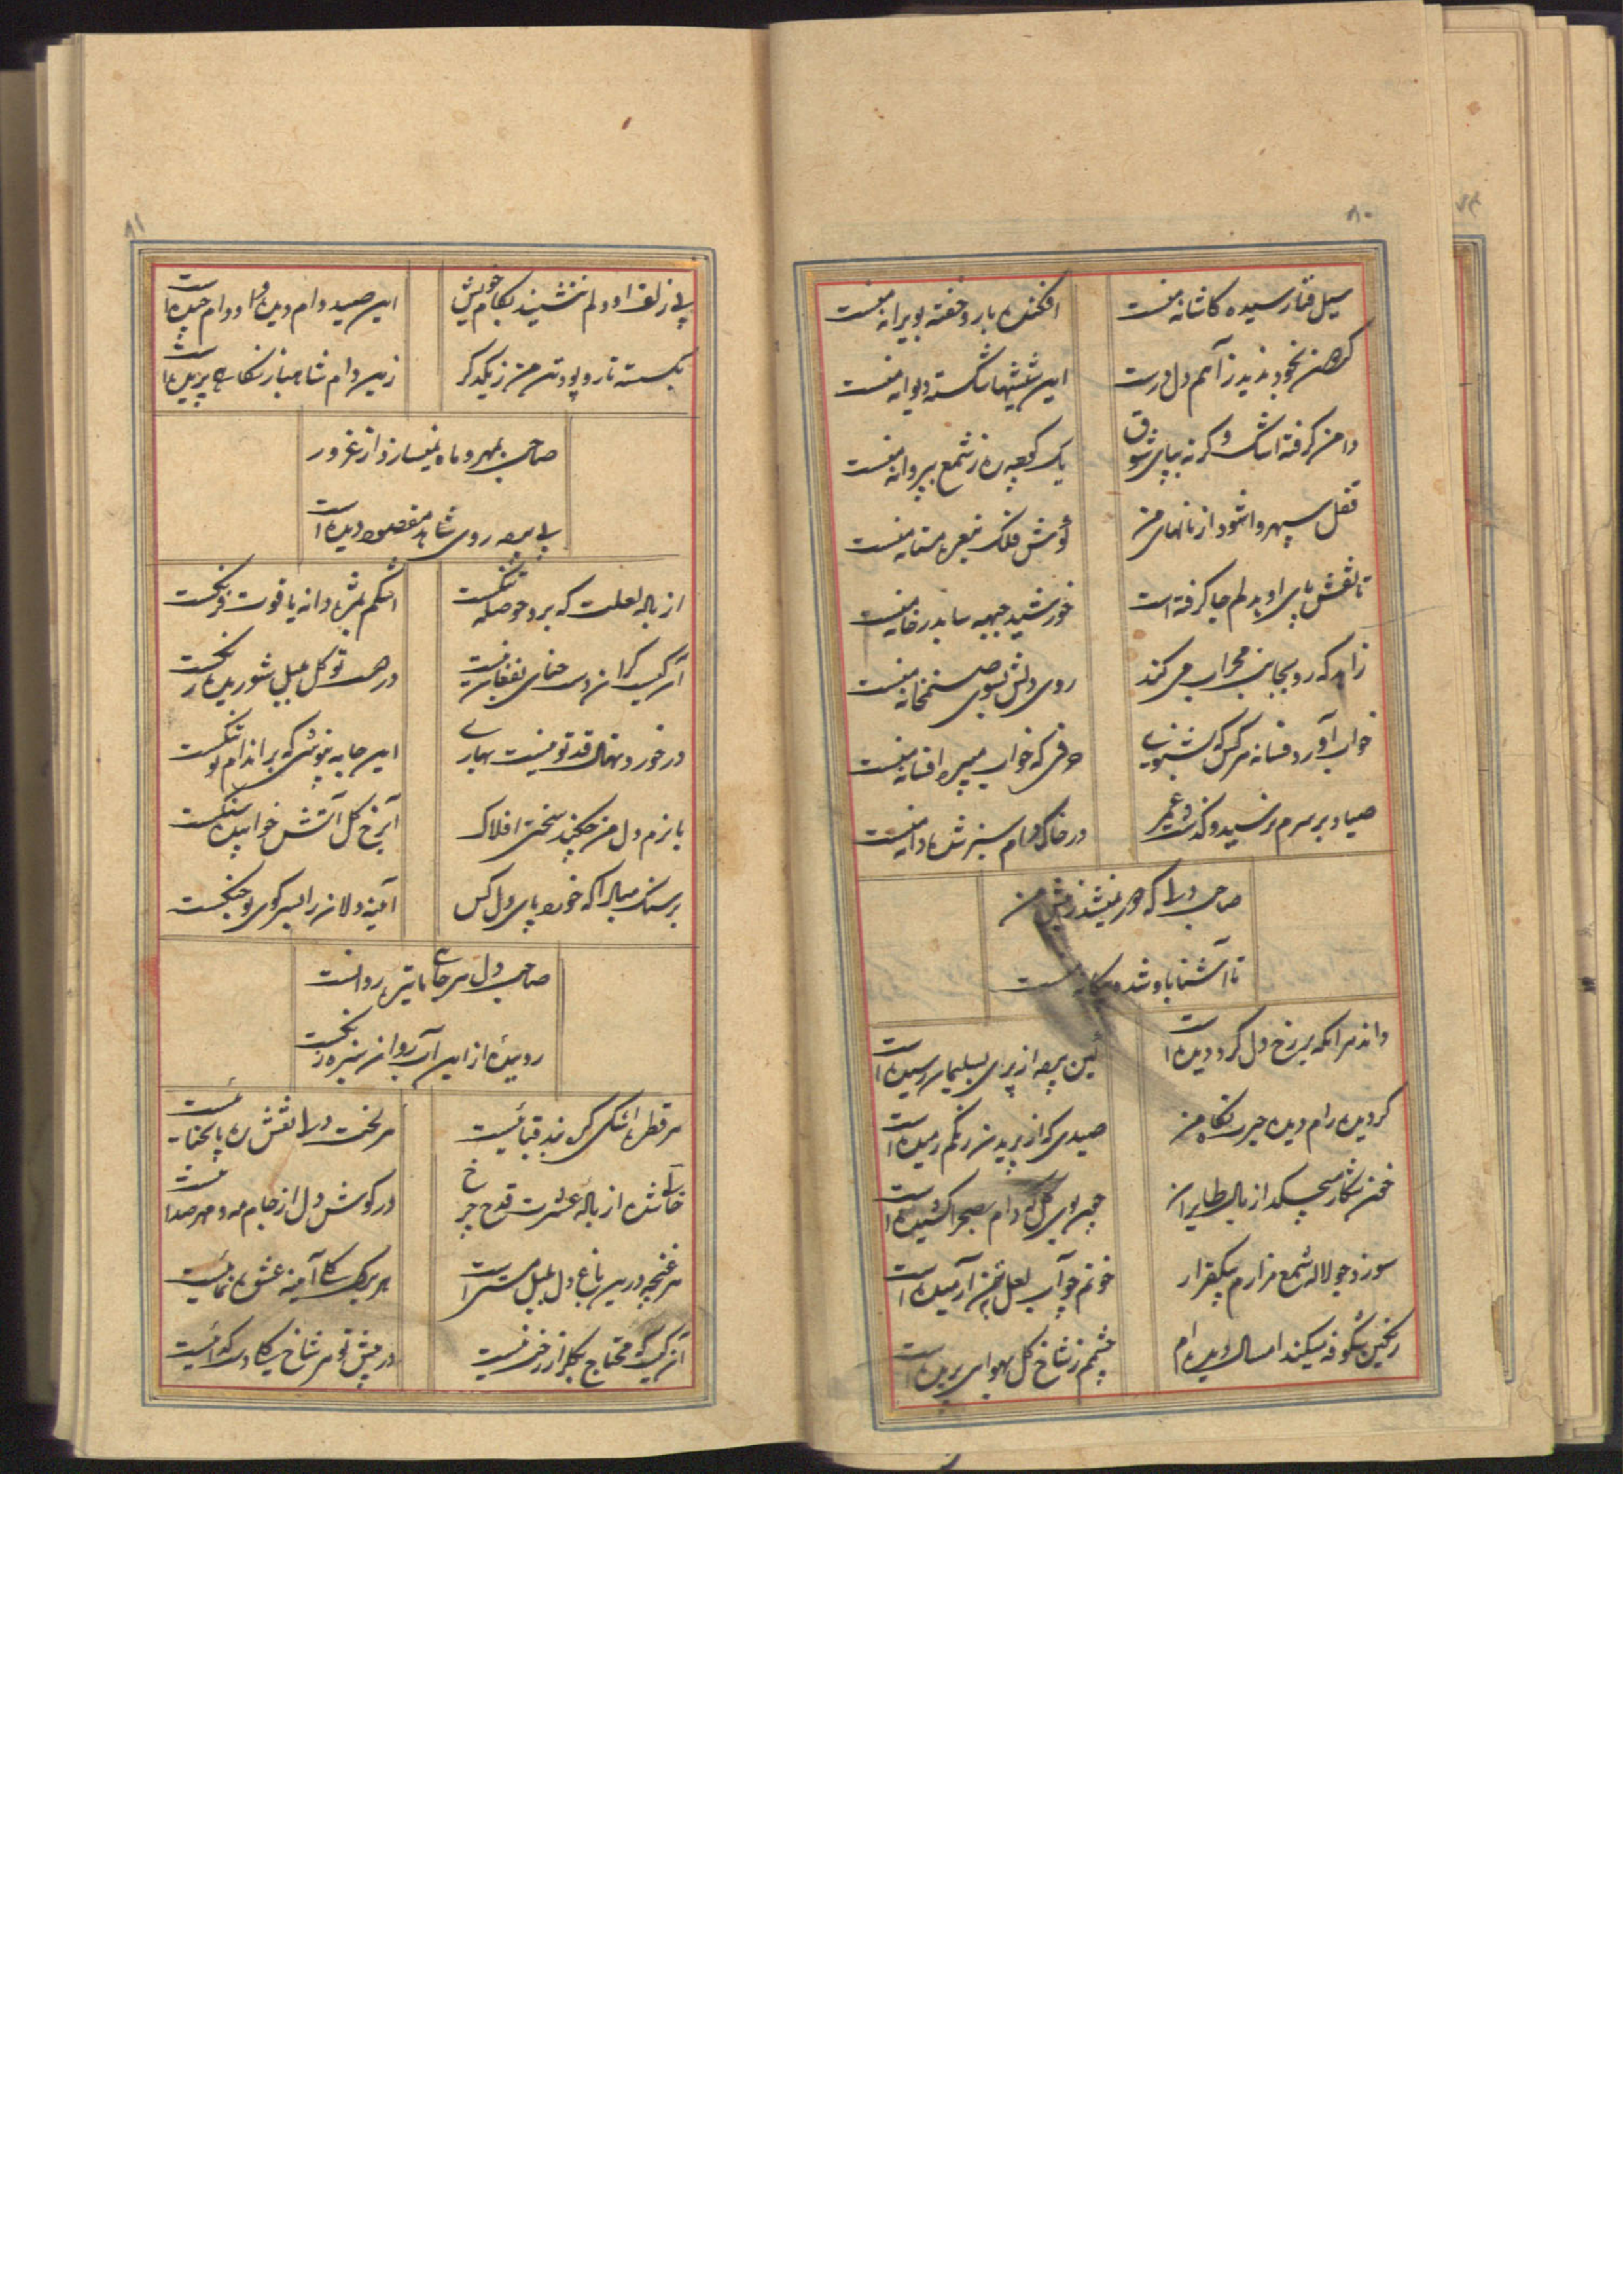 ۸۰
سیل فنا رسیده کاشانه منست
افکنده بار و خفته بویرانه منست
کوهن نخود ندید ز آهم دل درست
این شیشها شکسته دیوانه منست
دامن گرفته اشک و گریه بپای شوق
یک کوچه ره ز شمع به پروانه منست
قفل سپهر وا شود از نالهای من
گوش فلک بنعره مستانه منست
تا نقش پای او بدلم جا گرفته است
خورشید جبهه سا بدر خانه منست
زاهد که رو بجانب محراب می کند
روی دلش بسوی صنمخانه منست
خواب آورد فسانه هر کس که بشنوی
حرفی که خواب میبرد افسانه منست
صیاد بر سرم نرسید و گذشت عمر
در خاک دام سبز شده دانه منست
صاحب دلی که دور نمیشد ز پیش من
تا آشنا باو شده بیگانه منست
داند هر آنکه بر رخ دل گرد دیده است
کین پرده از پری بسلیمان رسیده است
گردیده رام دیده حیرت نگاه من
صیدی که از پریدن رنگم رمیده است
خون شکار میچکد از بال طایران
چون بوی گل که دام بصحرا کشیده است
سوزد چو لاله شمع مزارم بیکقرار
خونم چو آب لعل بخون آرمیده است
رنگین شکوفه میکند امسال دیده ام
چشمم ز شاخ گل بهوای پریده است
۸۱
بی زلف او دلم ننشیند بکام خویش
این صید دام دیده و در دام چیده است
بگسسته تار و پود تن من ز یکدگر
زین دام شاهباز نگاهی پریده است
صاحب بمهر و ماه نمیسازد از غرور
بی پرده روی شاهد مقصود دیده است
از باله لعلت که برد حوصله تنگست
اشکم بمژه دانه یاقوت فرنگست
آن کیست کزان دست حنای بفغان نیست
در دست تو گل بلبل شوریده رنگست
در خورد نهال قد تو نیست بهاری
این جامه بپوشی که بر اندام تو تنگست
با نرم دل من چکند سختی افلاک
آبرخ گل آتش خوابیده سنگست
بر سنگ میالا که خورد پای دل کس
آئینه دلان را بسر کوی تو جنگست
صاحب دل هر جائی ما تیره روانست
روییده از این آب روان سبزه زنگست
هر قطره اشکی گره بند قبائیست
هر لخت دلی نقش ره پای حنائیست
خالی شده از باله عشرت قدح چرخ
در گوش دل از جام مه و مهر صدائیست
هر غنچه درین باغ دل بلبل مستی است
هر برگ گلی آینه عشق نمائیست
آن کیست که محتاج بگلزار رخت نیست
در پیش تو هر شاخ گلی دست گدائیست